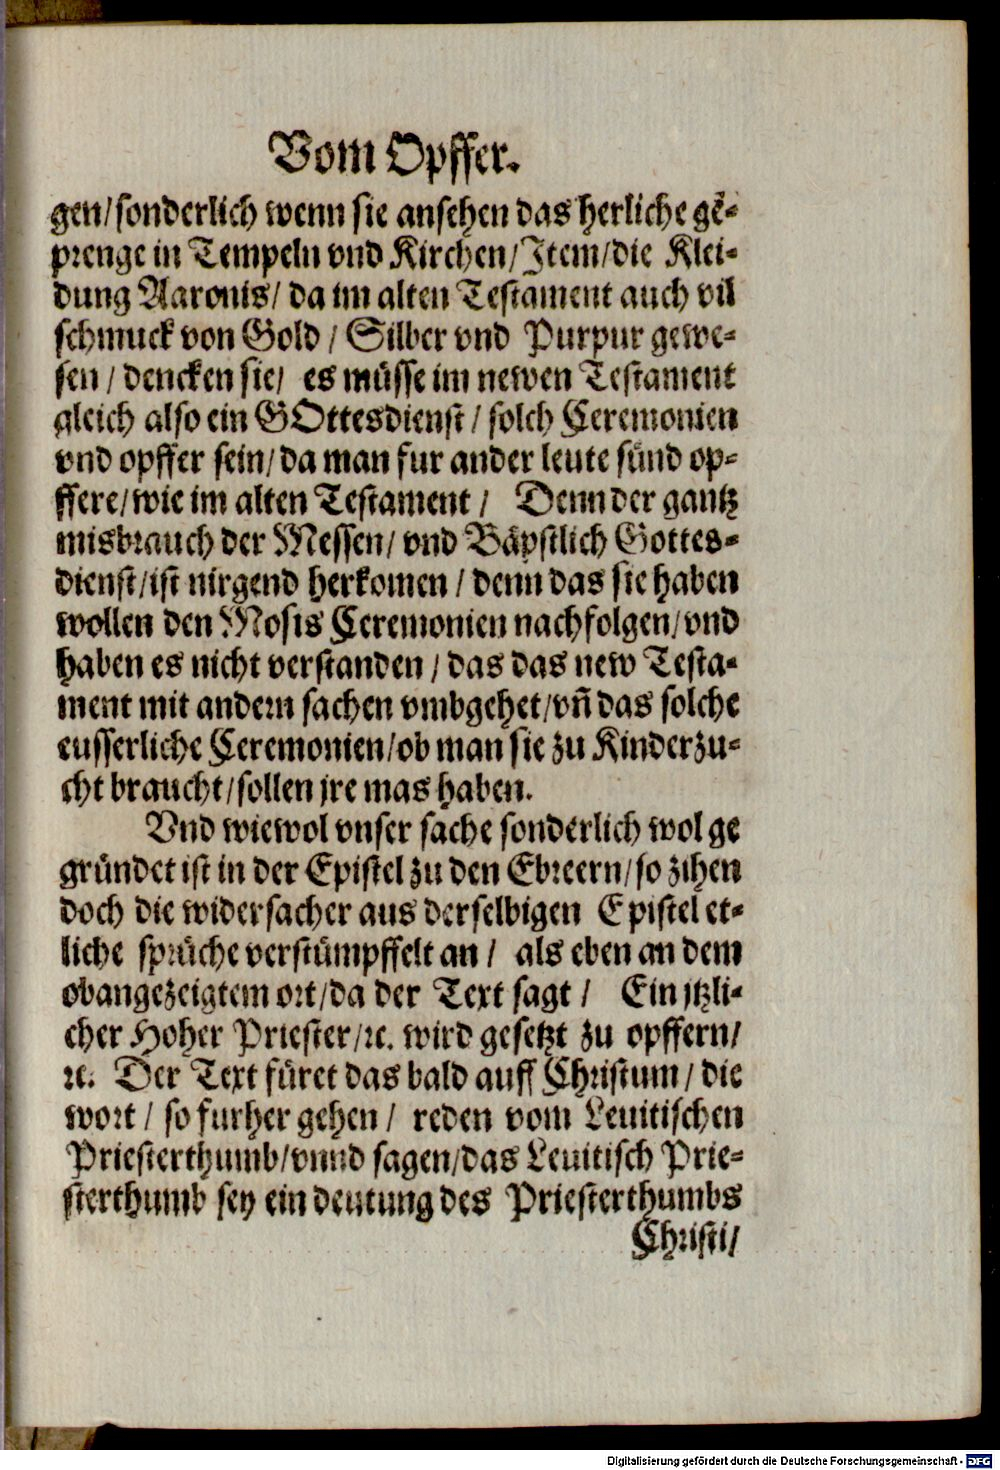 Vom Opffer.
gen/sonderlich wenn sie ansehen das herliche ge-
prenge in Tempeln vnd Kirchen/Item/die Klei-
dung Aaronis/ da im alten Testament auch vil
schmuck von Gold / Silber vnd Purpur gewe-
sen / dencken sie/ es müsse im newen Testament
gleich also ein GOttesdienst / solch Ceremonien
vnd opffer sein/ da man fur ander leute sünd op-
ffere/wie im alten Testament / Denn der gantz
misbrauch der Messen/ vnd Bäpstlich Gottes-
dienst/ist nirgend herkomen / denn das sie haben
wollen den Mosis Ceremonien nachfolgen/vnd
haben es nicht verstanden / das das new Testa-
ment mit andern sachen vmbgehet/vñ das solche
eusserliche Ceremonien/ob man sie zu Kinderzu-
cht braucht/sollen jre mas haben.
Vnd wiewol vnser sache sonderlich wol ge
gründet ist in der Epistel zu den Ebreern/so zihen
doch die widersacher aus derselbigen Epistel et-
liche sprüche verstümpffelt an / als eben an dem
obangezeigtem ort/da der Text sagt / Ein jtzli-
cher Hoher Priester/ꝛc. wird gesetzt zu opffern/
ꝛc. Der Text füret das bald auff Christum / die
wort / so furher gehen / reden vom Leuitischen
Priesterthumb/vnnd sagen/das Leuitisch Prie-
sterthumb sey ein deutung des Priesterthumbs
Christi/
Digitalisierung gefördert durch die Deutsche Forschungsgemeinschaft - DFG